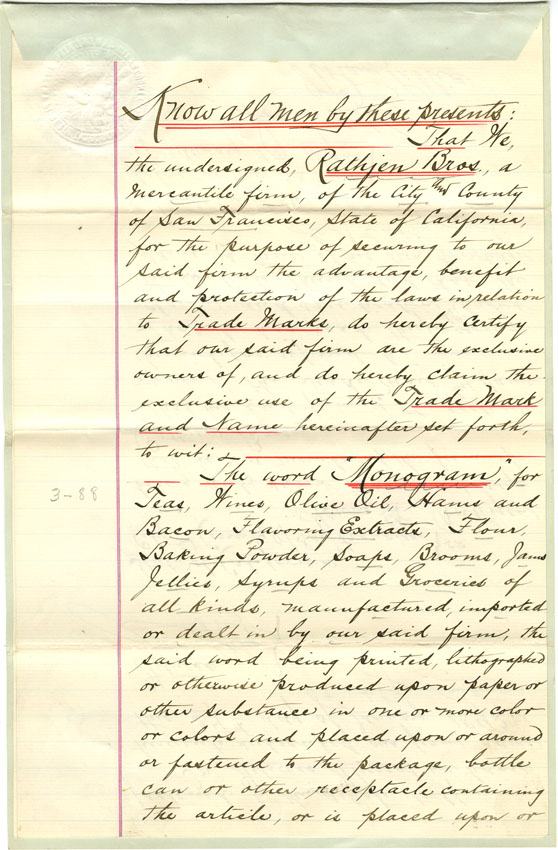 Know all men by these presents:
That We,
the undersigned, Rathjen Bros., a
Mercantile firm, of the City and County
of San Francisco, State of California,
for the purpose of securing to our
said firm the advantage, benefit
and protection of the laws in relation
to Trade Marks, do hereby certify
that our said firm are the exclusive
owners of, and do hereby claim the
exclusive use of the Trade Mark
and Name hereinafter set forth,
to wit:
The word "Monogram", for
Teas, Wines, Olive Oil, Hams and
Bacon, Flavoring Extracts, Flour,
Baking Powder, Soaps, Brooms, Jams
Jellies, Syrups and Groceries of
all kinds, manufactured, imported
or dealt in by our said firm, the
said word being printed, lithographed
or otherwise produced upon paper or
other substance in one or more color
or colors and placed upon or around
or fastened to the package, bottle
can or other receptacle containing
the article, or is placed upon or
3-88